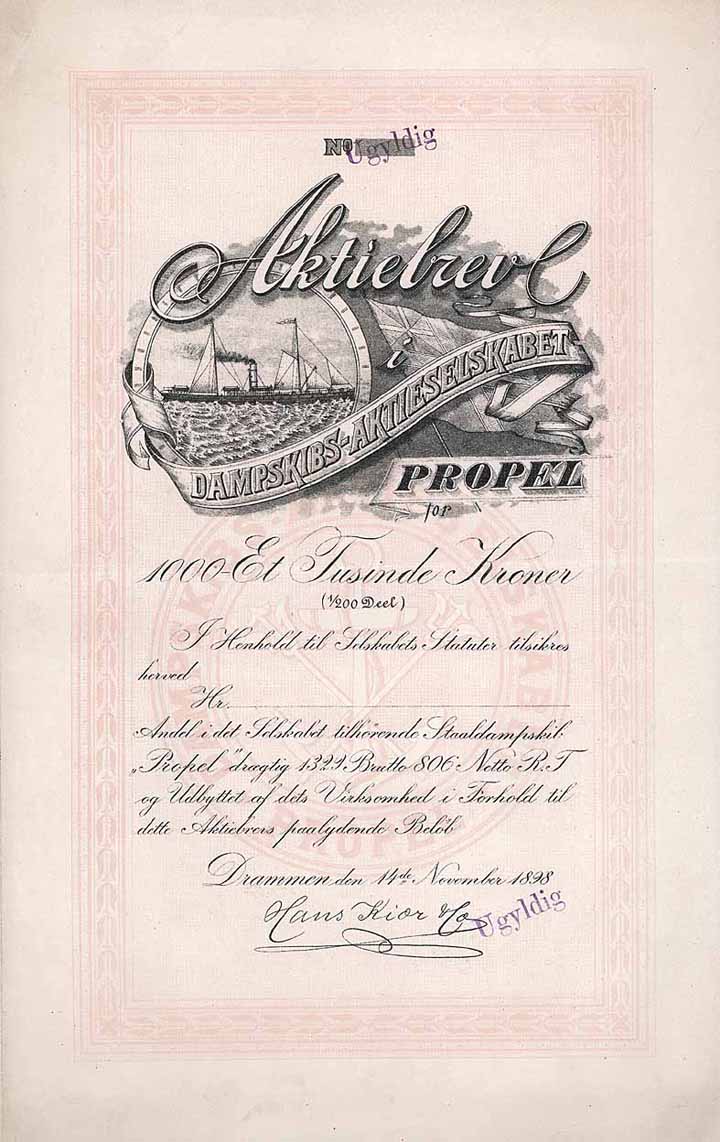 Nº Ugyldig
Aktiebrev
i
DAMPSKIBS-AKTIESELSKABET
PROPEL
for
1000-Et Tusinde Kroner
(1/200 Deel)
I Henhold til Selskabets Statuter tilsikres
herved
Hr.
Andel i det Selskabet tilhørende Staaldampskib
„Propel" drægtig 1329 Brutto 806 Netto R.T
og Udbyttet af dets Virksomhed i Forhold til
dette Aktiebrevs paalydende Beløb
Drammen den 14de November 1898
Hans Kiær & Co
Ugyldig